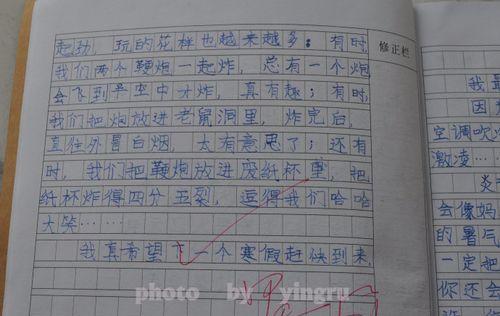 起劲，玩的花样也越来越多：有时，
我们两个鞭炮一起炸，总有一个炮
会飞到半空中大炸，真有趣；有时，
我们把炮放进老鼠洞里，炸完后，
直往外冒白烟，太有意思了；还有
时，我们把鞭炮放进废纸杯里，把
纸杯炸得四分五裂，逗得我们哈哈
大笑……
我真希望下一个寒假赶快到来。
修正栏
我最
因
空调吹
激凌…
炎
会像妈
的暑气
一定把
你还会
photo by yingru